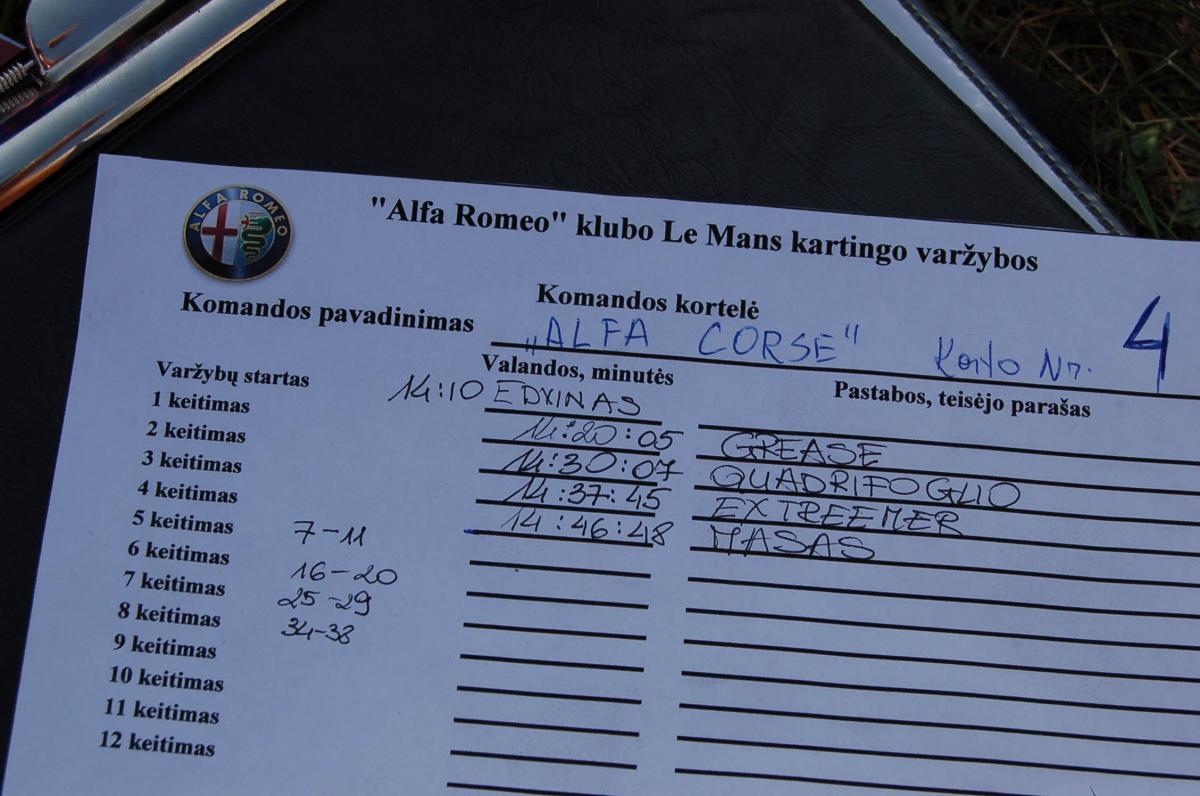 ALFA ROMEO
"Alfa Romeo" klubo Le Mans kartingo varžybos
Komandos kortelė
Komandos pavadinimas „ALFA CORSE" Karto Nr. 4
Valandos, minutės Pastabos, teisėjo parašas
Varžybų startas 14:10 EDVINAS
1 keitimas 14:20:05 GREASE
2 keitimas 14:30:07 QUADRIFOGLIO
3 keitimas 14:37:45 EXTREEMER
4 keitimas 14:46:48 MASAS
5 keitimas 7-11
6 keitimas 16-20
7 keitimas 25-29
8 keitimas 34-38
9 keitimas
10 keitimas
11 keitimas
12 keitimas